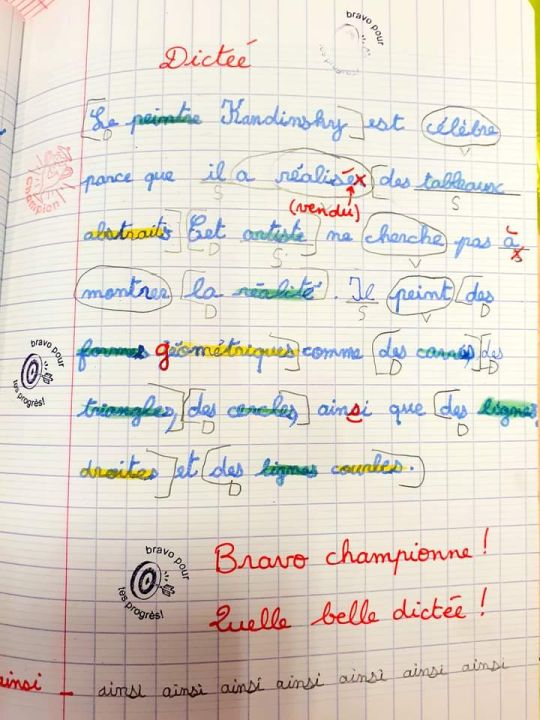 bravo pour
Dictée
Le peintre Kandinsky est célèbre
champion!
parce que il a réalisé des tableaux
(vendu)
abstraits Cet artiste ne cherche pas à
montrer la réalité. Il peint des
formes géométriques comme des carrés, des
bravo pour
tes progrès!
triangles, des cercles, ainsi que des lignes
droites et des lignes courbes.
bravo pour
tes progrès!
Bravo championne !
Quelle belle dictée !
ainsi - ainsi ainsi ainsi ainsi ainsi ainsi ainsi